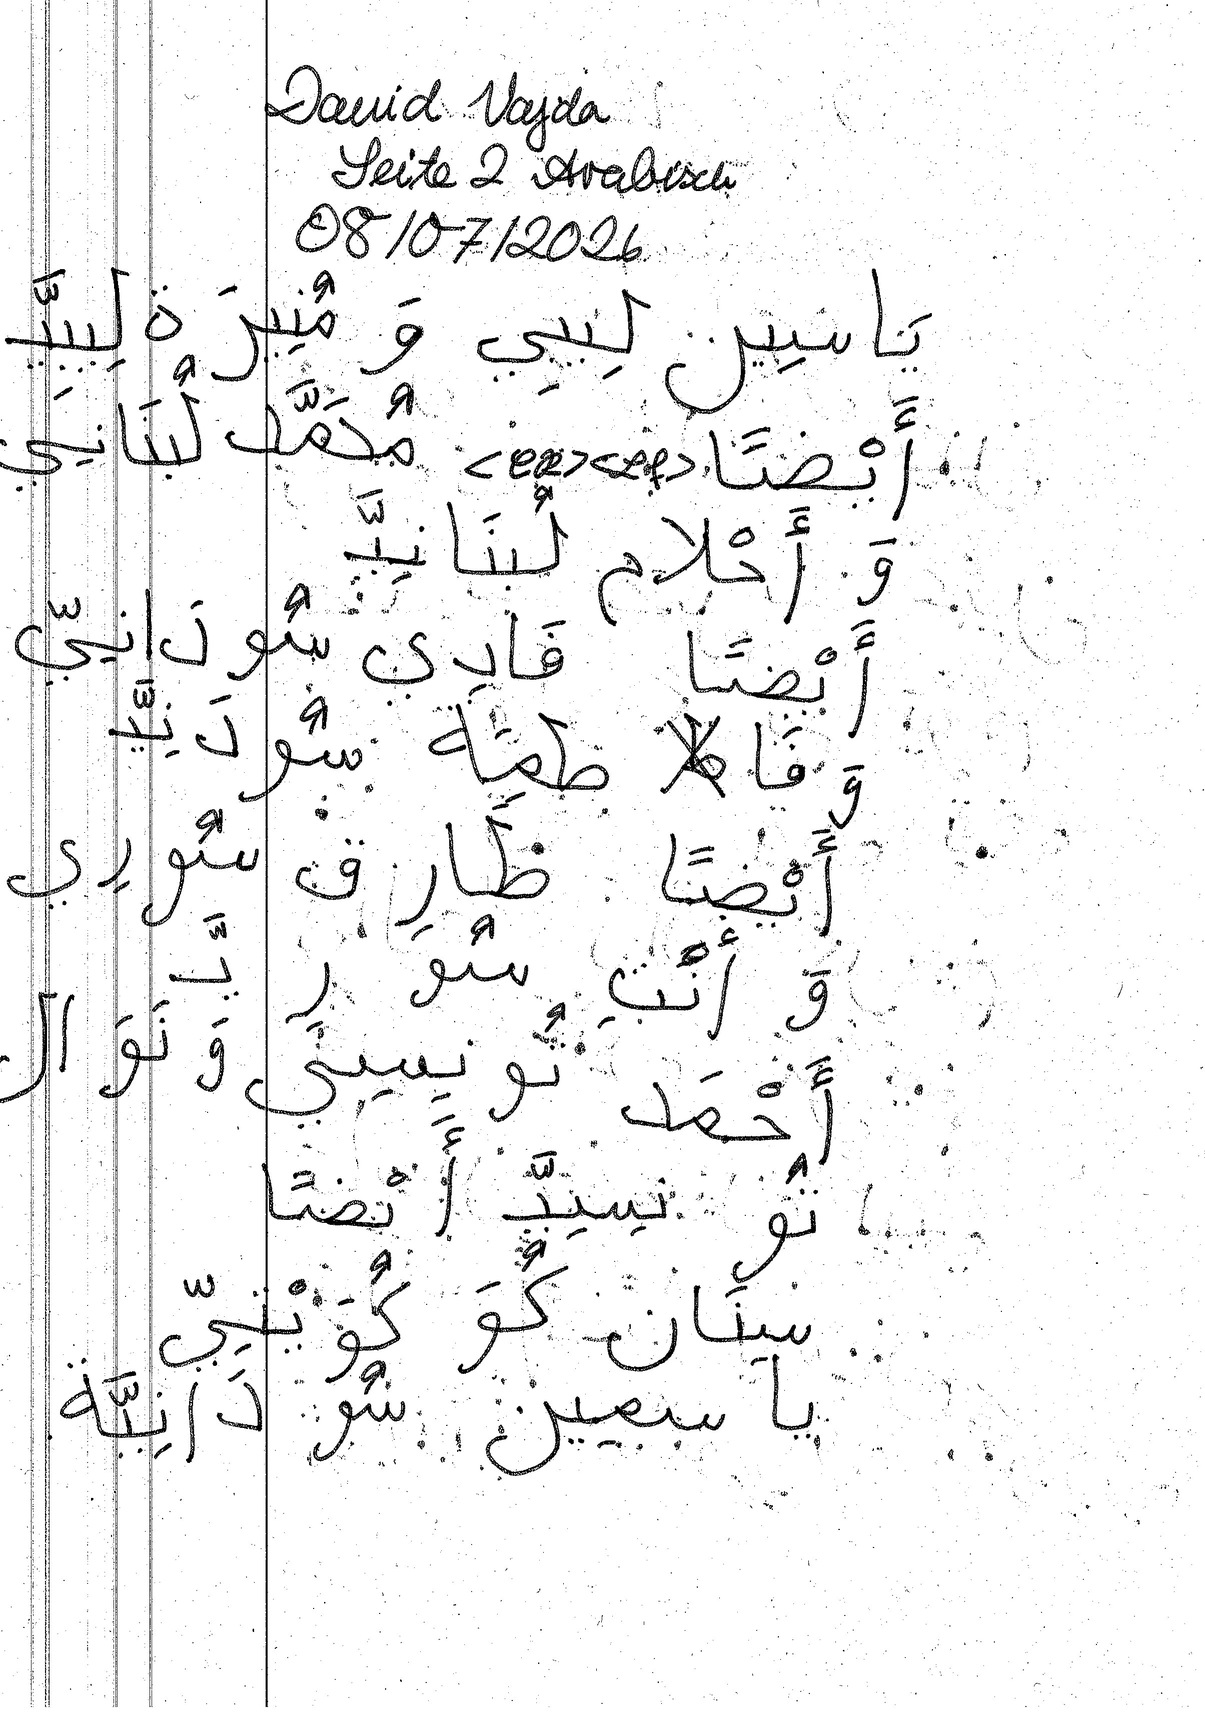 David Vajda
Seite 2 Arabisch
08/07/2026
يَاسِين لِيبِي وَ مُنِيرَة لِيبِيَّ
أَيْضًا <er><ef> مُحَمَّد لُبنَانِي
وَ أَحْلام لُبنَانِيَّ
أَيْضًا فَادِي سُودَانِيّ
وَ فَا طِمَة سُودَنِيَّ
أَيْضًا طَارِق سُورِي
وَ أَنْتِ سُورِيَّ
أَحْمَد تُونِسِيني وَ نَوَال
تُونِسِيَّ أَيْضًا
سِنَان كُوَ كُوَيْتِيّ
ياسمين سُودَانِيَّة